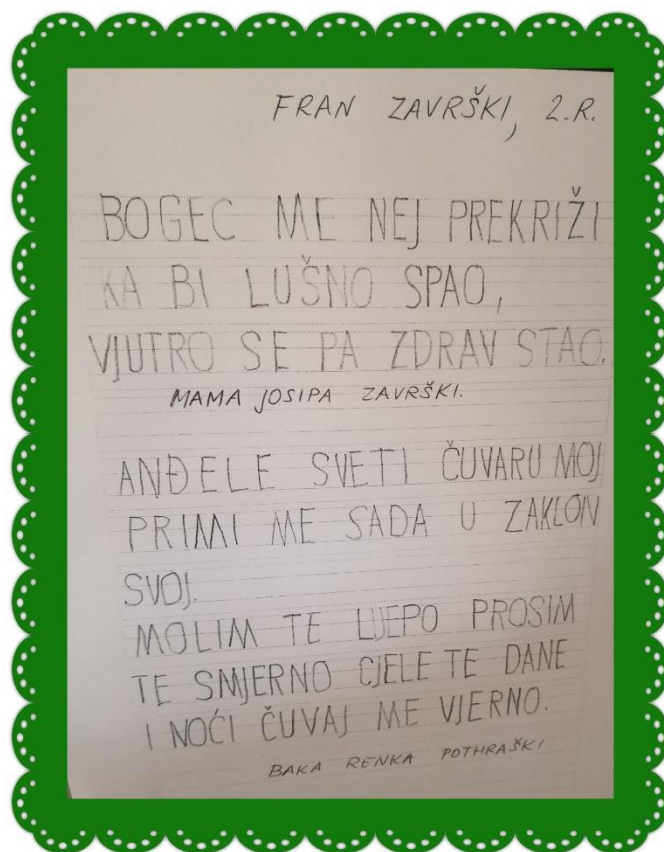 FRAN ZAVRŠKI, 2.R.
BOGEC ME NEJ PREKRIŽI
KA BI LUŠNO SPAO,
VJUTRO SE PA ZDRAV STAO.
MAMA JOSIPA ZAVRŠKI.
ANĐELE SVETI ČUVARU MOJ
PRIMI ME SADA U ZAKLON
SVOJ.
MOLIM TE LIJEPO PROSIM
TE SMJERNO CJELE TE DANE
I NOĆI ČUVAJ ME VJERNO.
BAKA RENKA POTHRAŠKI